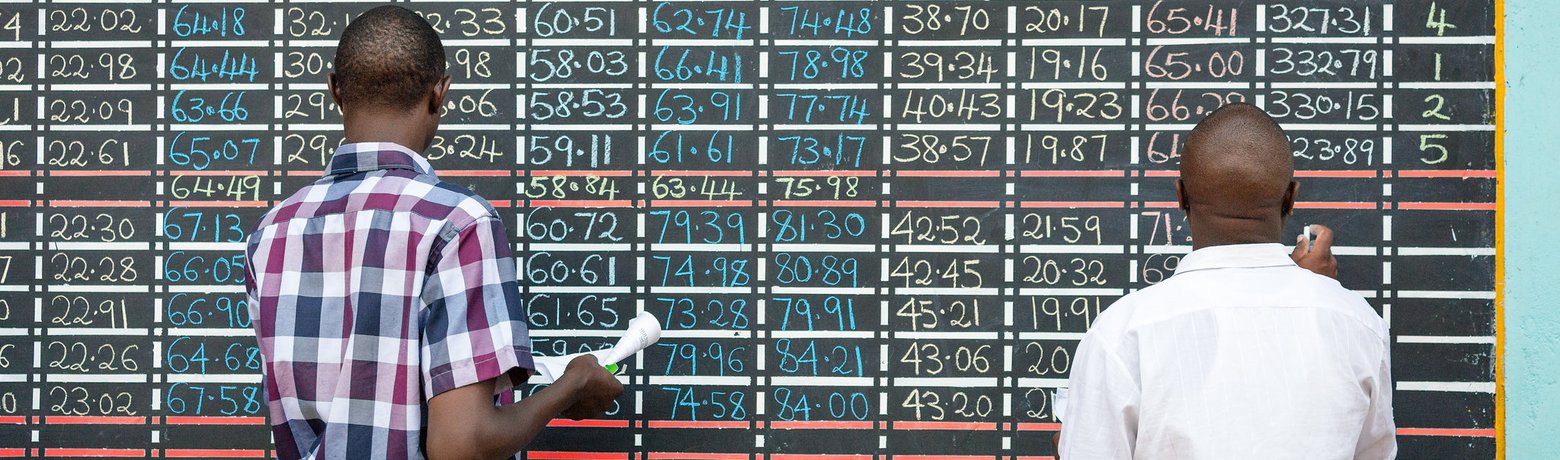 22.02 64.18 32. 2.33 60.51 62.74 74.48 38.70 20.17 65.41 327.31 4
22.98 64.44 30. .98 58.03 66.41 78.98 39.34 19.16 65.00 332.79 1
22.09 63.66 29. .06 58.53 63.91 77.74 40.43 19.23 66. 330.15 2
22.61 65.07 29. 3.24 59.11 61.61 73.17 38.57 19.87 23.89 5
64.49 58.84 63.44 75.98
22.30 67.13 60.72 79.39 81.30 42.52 21.59 71
22.28 66.05 60.61 74.98 80.89 42.45 20.32 69
22.91 66.90 61.65 73.28 79.91 45.21 19.91
22.26 64.68 79.96 84.21 43.06 20
23.02 67.58 74.58 84.00 43.20